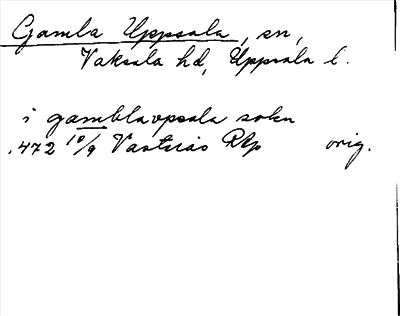 Gamla Uppsala, sn,
Vaksala hd, Uppsala l.
i gamblavpsala sokn
.472 10/9 Västerås RAp orig.